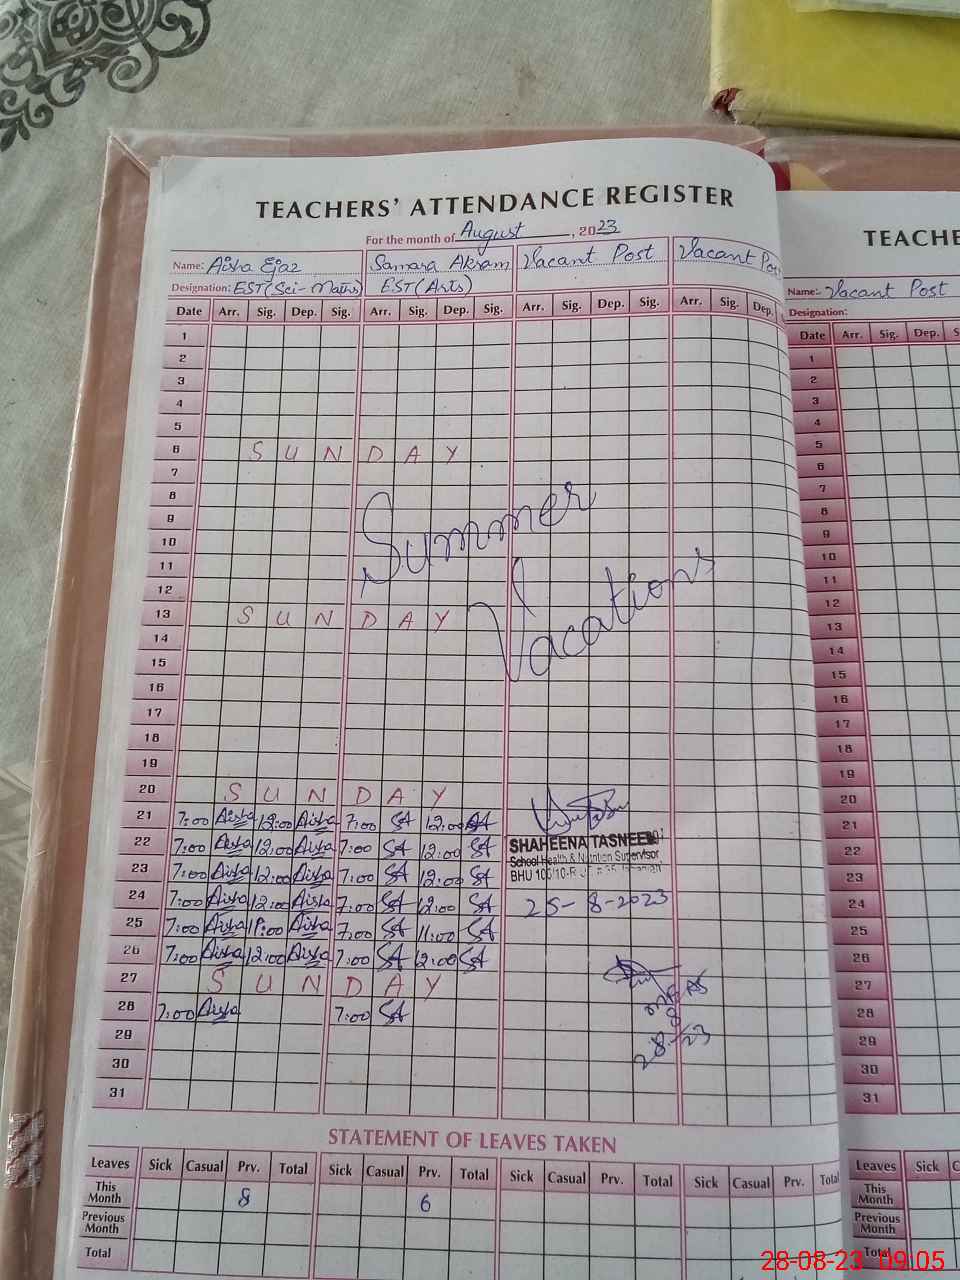 TEACHERS' ATTENDANCE REGISTER
For the month of August, 2023
Name: Aisha Ejaz Samara Akram Vacant Post Vacant Pos
Designation: EST (Sci-Maths) EST (Arts)
Date Arr. Sig. Dep. Sig. Arr. Sig. Dep. Sig. Arr. Sig. Dep. Sig. Arr. Sig. Dep.
1
2
3
4
5
6 SUNDAY
7
8
9
10
11
12
Summer
13 SUNDAY
Vacations
14
15
16
17
18
19
20 SUNDAY
21 7:00 Aisha 12:00 Aisha 7:00 SA 12:00 SA
22 7:00 Aisha 12:00 Aisha 7:00 SA 12:00 SA
23 7:00 Aisha 12:00 Aisha 7:00 SA 12:00 SA
24 7:00 Aisha 12:00 Aisha 7:00 SA 12:00 SA
25 7:00 Aisha 11:00 Aisha 7:00 SA 11:00 SA
26 7:00 Aisha 12:00 Aisha 7:00 SA 12:00 SA
27 SUNDAY
28 7:00 Aisha 7:00 SA
29
30
31
SHAHEENA TASNEEM
School Health & Nutrition Supervisor
BHU 106/10-R
25-8-2023
28-8-23
STATEMENT OF LEAVES TAKEN
Leaves Sick Casual Prv. Total Sick Casual Prv. Total Sick Casual Prv. Total Sick Casual Prv. Total
This Month 8 6
Previous Month
Total
TEACHE
Name: Vacant Post
Designation:
Date Arr. Sig. Dep. S
1
2
3
4
5
6
7
8
9
10
11
12
13
14
15
16
17
18
19
20
21
22
23
24
25
26
27
28
29
30
31
Leaves Sick C
This Month
Previous Month
Total
28-08-23 09:05